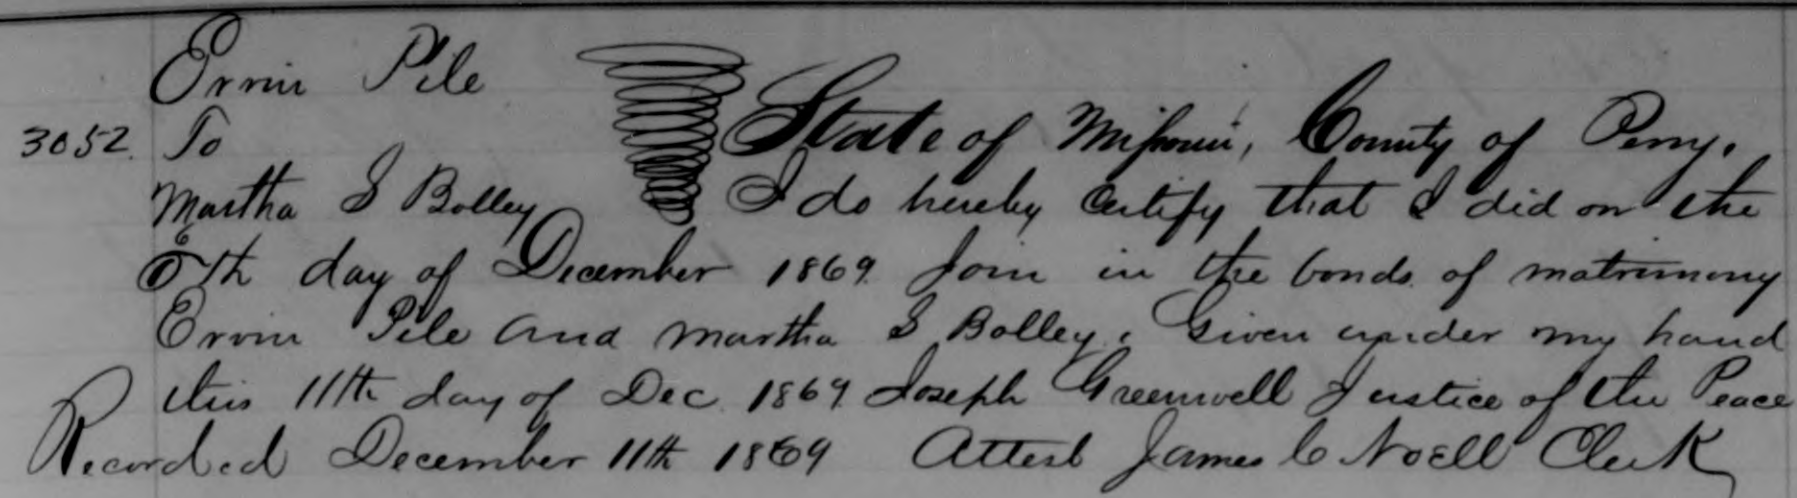 Ervin Pile
3052. To
State of Missouri, County of Perry.
Martha S Bolley I do hereby Certify that I did on the
5th day of December 1869 Join in the bonds of matrimony
Ervin Pile and Martha S Bolley. Given under my hand
this 11th day of Dec. 1869 Joseph Greenwell Justice of the Peace
Recorded December 11th 1869 Attest James C Noell Clerk